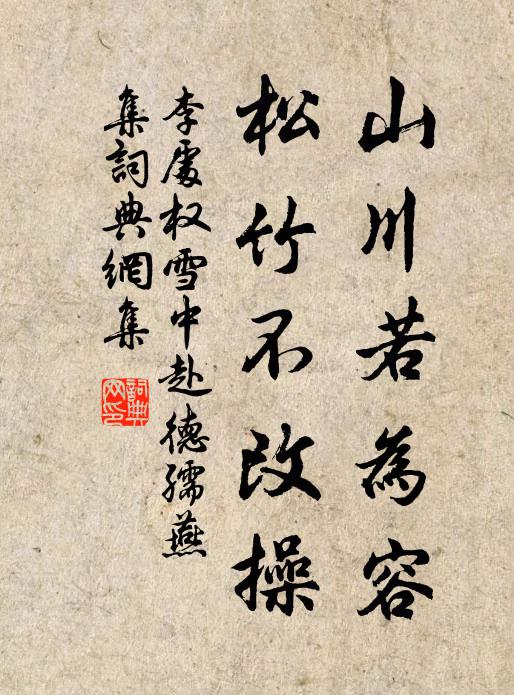 山川若為容
松竹不改操
李處权雪中赴德孺燕
集詞典網集
詞典
网印